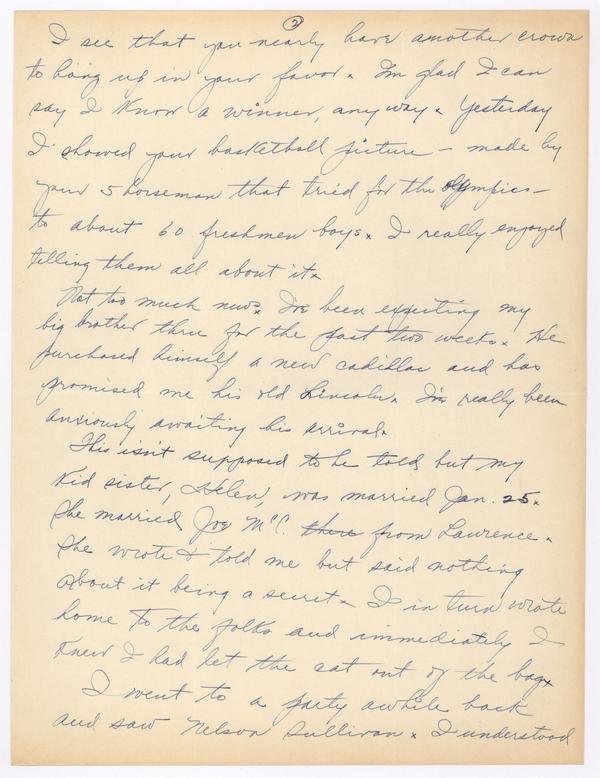 2
I see that you nearly have another crown
to hang up in your favor. I'm glad I can
say I know a winner, anyway. Yesterday
I showed your basketball picture – made by
your 5 horseman that tried for the Olympics –
to about 60 freshmen boys. I really enjoyed
telling them all about it.
Not too much news. I've been expecting my
big brother thru for the past two weeks. He
purchased himself a new cadillac and has
promised me his old Lincoln. I've really been
anxiously awaiting his arrival.
This isn't supposed to be told but my
kid sister, Helen, was married Jan. 25.
She married Joe McC. there from Lawrence.
She wrote & told me but said nothing
about it being a secret. I in turn wrote
home to the folks and immediately I
knew I had let the cat out of the bag.
I went to a party awhile back
and saw Nelson Sullivan. I understood